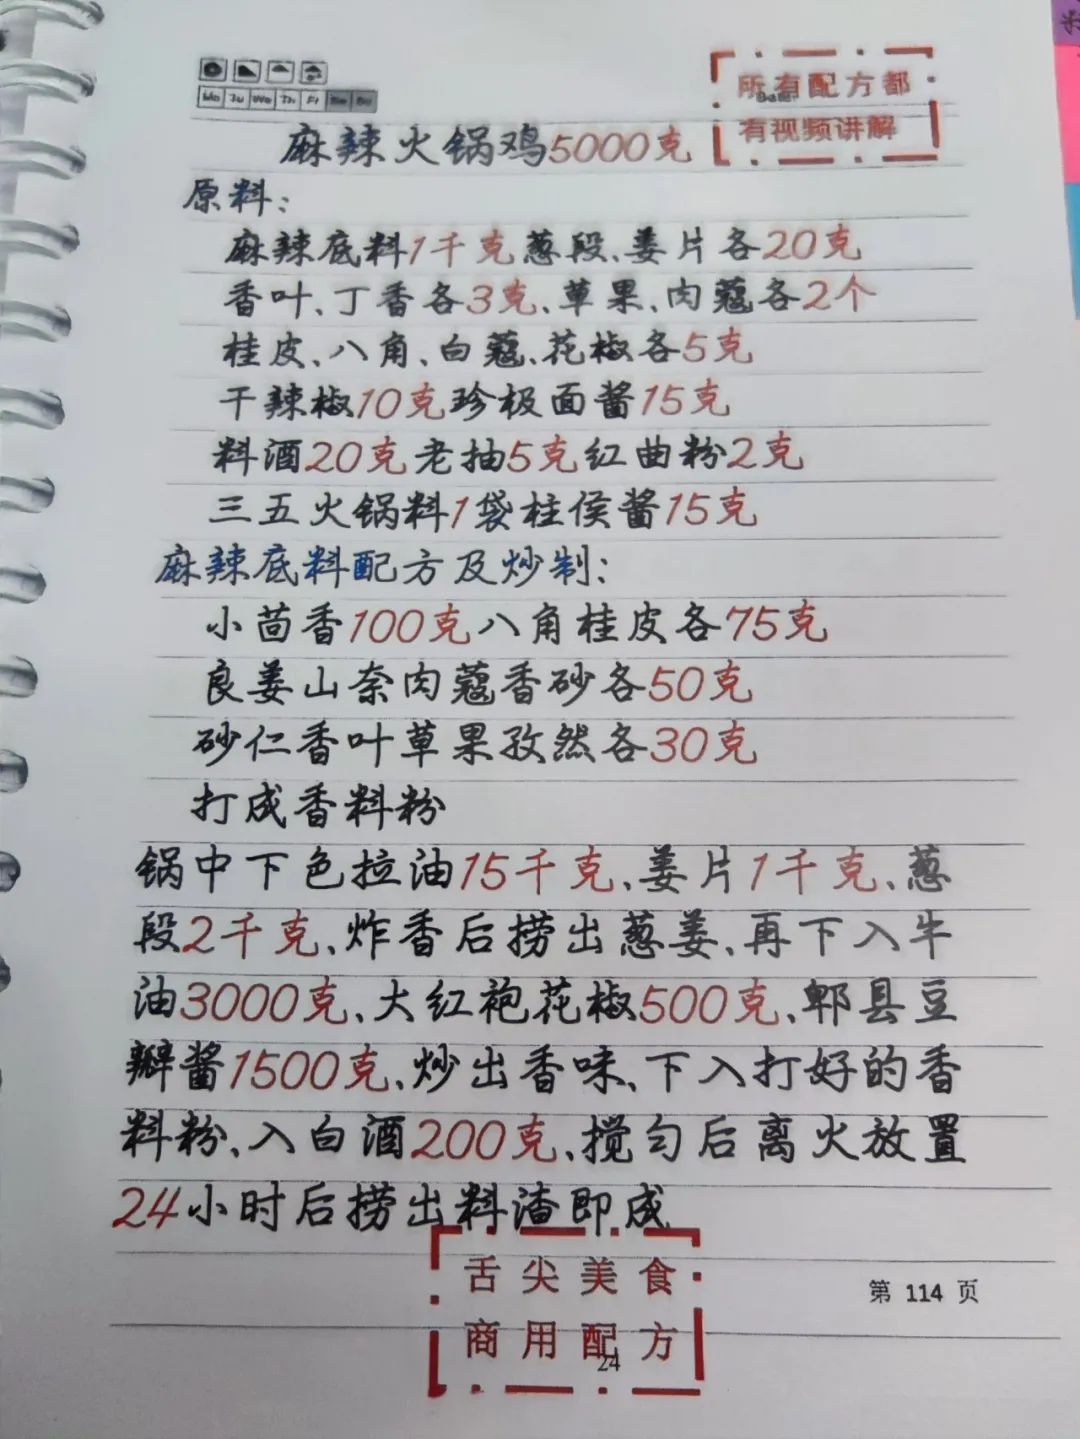 所有配方都
有视频讲解
Mo Tu We Th Fr Sa Su
麻辣火锅鸡5000克
原料:
麻辣底料1千克葱段、姜片各20克
香叶、丁香各3克、草果、肉蔻各2个
桂皮、八角、白蔻、花椒各5克
干辣椒10克珍极面酱15克
料酒20克老抽5克红曲粉2克
三五火锅料1袋柱侯酱15克
麻辣底料配方及炒制:
小茴香100克八角桂皮各75克
良姜山奈肉蔻香砂各50克
砂仁香叶草果孜然各30克
打成香料粉
锅中下色拉油15千克、姜片1千克、葱
段2千克、炸香后捞出葱姜、再下入牛
油3000克、大红袍花椒500克、郫县豆
瓣酱1500克、炒出香味、下入打好的香
料粉、入白酒200克、搅匀后离火放置
24小时后捞出料渣即成
舌尖美食
商用配方
24
第 114 页